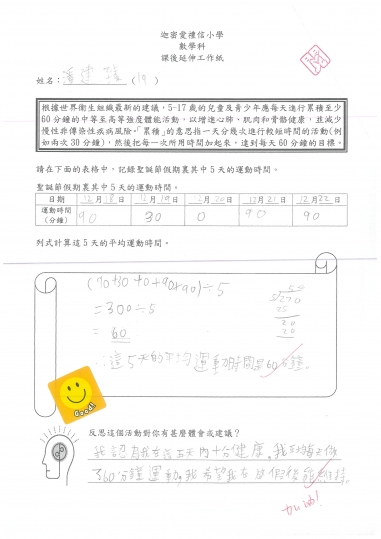 迦密愛禮信小學
數學科
課後延伸工作紙
姓名：潘建 (19)
根據世界衞生組織最新的建議，5-17 歲的兒童及青少年應每天進行累積至少
60 分鐘的中等至高等強度體能活動，以增進心肺、肌肉和骨骼健康，並減少
慢性非傳染性疾病風險。「累積」的意思指一天分幾次進行較短時間的活動(例
如兩次 30 分鐘)，然後把每一次所用時間加起來，達到每天 60 分鐘的目標。
請在下面的表格中，記錄聖誕節假期裏其中 5 天的運動時間。
聖誕節假期裏其中 5 天的運動時間。
日期 12月18日 12月19日 12月20日 12月21日 12月22日
運動時間 (分鐘) 90 30 0 90 90
列式計算這 5 天的平均運動時間。
(90+30+0+90+90)÷5
=300÷5
=60
∴這5天的平均運動時間是60分鐘。
Good!
反思這個活動對你有甚麼體會或建議？
我認為我在這五天內十分健康。我平均每天做
了60分鐘運動。我希望我在放假後能維持。
加油!